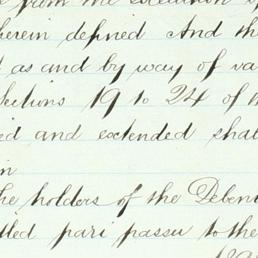 from the execution of
herein defined And the
as and by way of va
Sections 19 to 24 of th
ied and extended shal
in
he holders of the Deben
tled pari passu to the